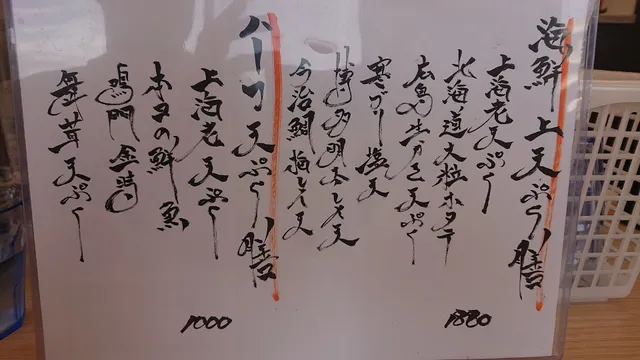 海鮮上天ぷら膳
上海老天ぷら
北海道大粒ホタテ
広島生がき天ぷら
寒ブリ塩天
博多明太しそ天
今治鯛梅しそ天
1880
ハーフ天ぷら膳
上海老天ぷら
本日の鮮魚
鳴門金時
舞茸天ぷら
1000